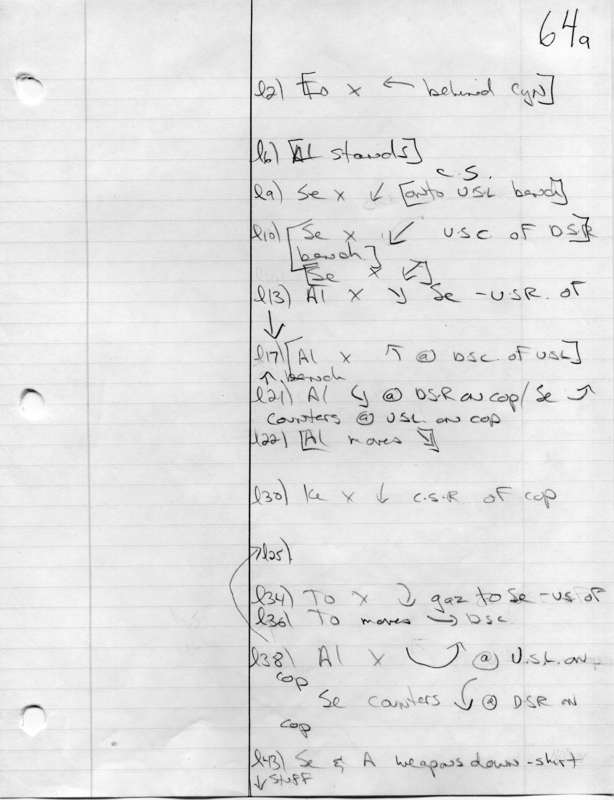 64a
l2) [To x ← behind Cyn]
l6) [Al stands]
C.S.
l9) Se x ↙ [onto USL bench]
l10) [Se x ↙ USC of DSR
bench]
[Se x ↙]
l13) Al x ↘ Se - USR of
↓
l17) [Al x ↖ @ DSC of USL]
↑ bench
l21) Al ↘ @ DSR on cop / Se ↗
counters @ USL on cop
l22) [Al moves ↘]
l30) Ke x ↓ C.S.R of cop
l25)
l34) To x ↓ gaz to Se - US of
l36) To moves → DSC
l38) Al x ⤻ @ U.S.L. on
cop
Se counters ↓ @ DSR on
cop
l43) Se & A weapons down - shirt
↓ stuff